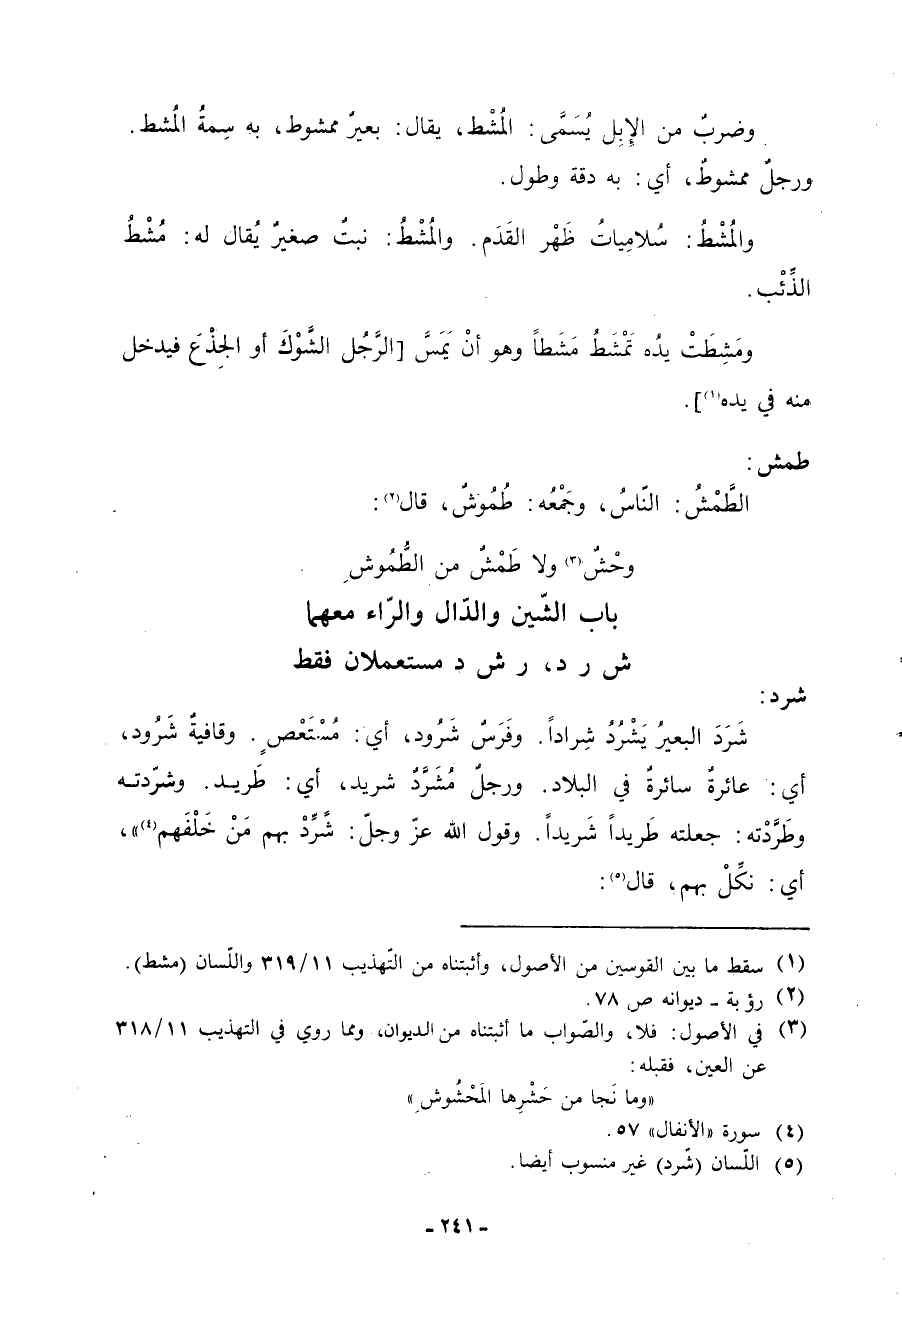 وضربٌ من الإِبِل يُسَمَّى : المُشْط، يقال: بعيرٌ ممشوط، به سِمةُ المُشط.
ورجلٌ ممشوطٌ، أي: به دقة وطول.
والمُشْطُ: سُلامِياتُ ظَهْر القَدَم. والمُشْطُ: نبتٌ صغيرٌ يُقال له: مُشْطُ
الذِّئْب.
ومَشِطَتْ يدُه تَمْشَطُ مَشَطاً وهو أنْ يَمَسَّ [الرَّجُل الشَّوْكَ أو الجِذْعَ فيدخل
منه في يده(١)].
طمش:
الطَّمْشُ: النّاسُ، وجَمْعُه: طُمُوشٌ، قال(٢):
وحْشٌ(٣) ولا طَمْشٌ من الطُّمُوشِ
باب الشّين والدّال والرّاء معهما
ش ر د، ر ش د مستعملان فقط
شرد:
شَرَدَ البعيرُ يَشْرُدُ شِراداً. وفَرَسٌ شَرُود، أي: مُسْتَعْصٍ. وقافيةٌ شَرُود،
أي: عائرةٌ سائرةٌ في البلاد. ورجلٌ مُشَرَّدٌ شريد، أي: طَريد. وشرّدته
وطَرَّدْته: جعلته طَريداً شَريداً. وقول الله عزّ وجلّ: شَّرِّدْ بهم مَنْ خَلْفَهم(٤)»،
أي: نكِّلْ بهم، قال(٥):
(١) سقط ما بين القوسين من الأصول، وأثبتناه من التّهذيب ٣١٩/١١ واللّسان (مشط).
(٢) رؤبة - ديوانه ص ٧٨.
(٣) في الأصول: فلا، والصّواب ما أثبتناه من الديوان، ومما روي في التهذيب ٣١٨/١١
عن العين، فقبله:
«وما نَجا من حَشْرِها المَحْشُوشِ»
(٤) سورة «الأنفال» ٥٧.
(٥) اللّسان (شّرد) غير منسوب أيضا.
- ٢٤١ -